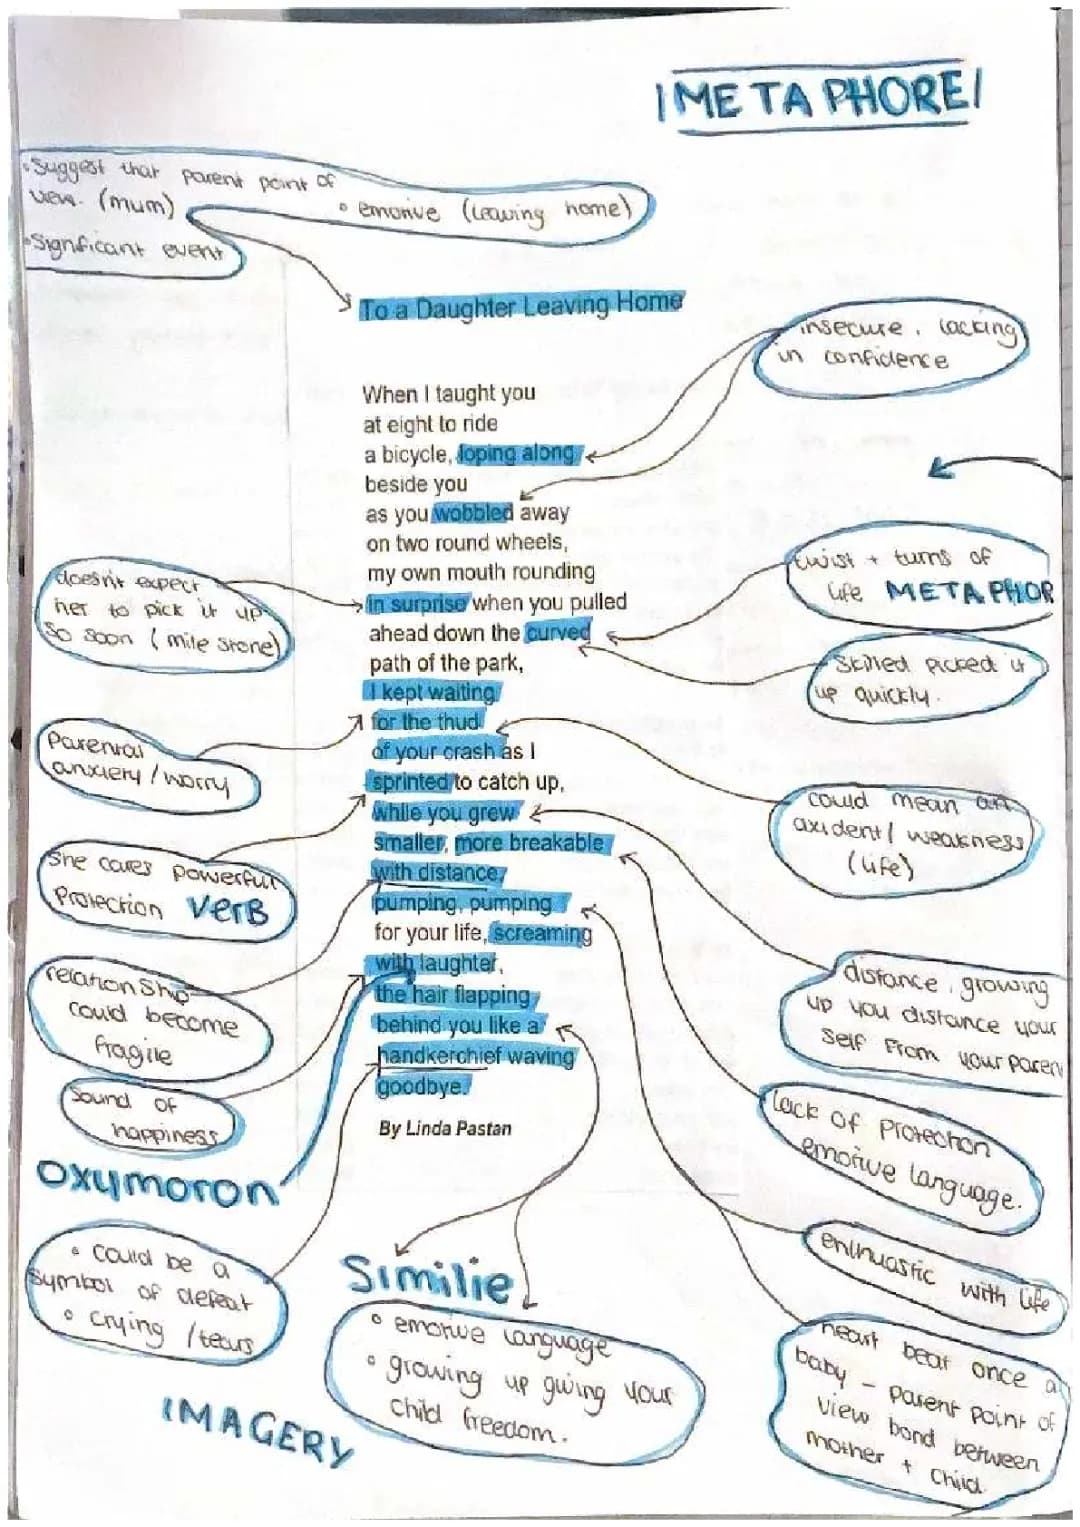 |METAPHORE|
• Suggest that parent point of
view. (mum)
• emotive (leaving home)
• Significant event
To a Daughter Leaving Home
insecure, lacking
in confidence
When I taught you
at eight to ride
a bicycle, loping along
beside you
as you wobbled away
on two round wheels,
my own mouth rounding
in surprise when you pulled
ahead down the curved
path of the park,
I kept waiting
for the thud
of your crash as I
sprinted to catch up,
while you grew
smaller, more breakable
with distance,
pumping, pumping
for your life, screaming
with laughter,
the hair flapping
behind you like a
handkerchief waving
goodbye.
By Linda Pastan
doesn't expect
her to pick it up
so soon (mile stone)
Parental
anxiety / worry
She cares powerful
Protection VERB
relationship
could become
fragile
Sound of
happiness
OXYMORON
• Could be a
symbol of defeat
• Crying / tears
IMAGERY
twist + turns of
life METAPHOR
Skilled picked it
up quickly.
could mean an
axident / weakness
(life)
distance, growing
up you distance your
self from your paren
lack of protection
emotive language.
enthuastic with life
heart beat once a
baby - parent point of
view bond between
mother + child.
Similie
• emotive language
• growing up giving your
child freedom.